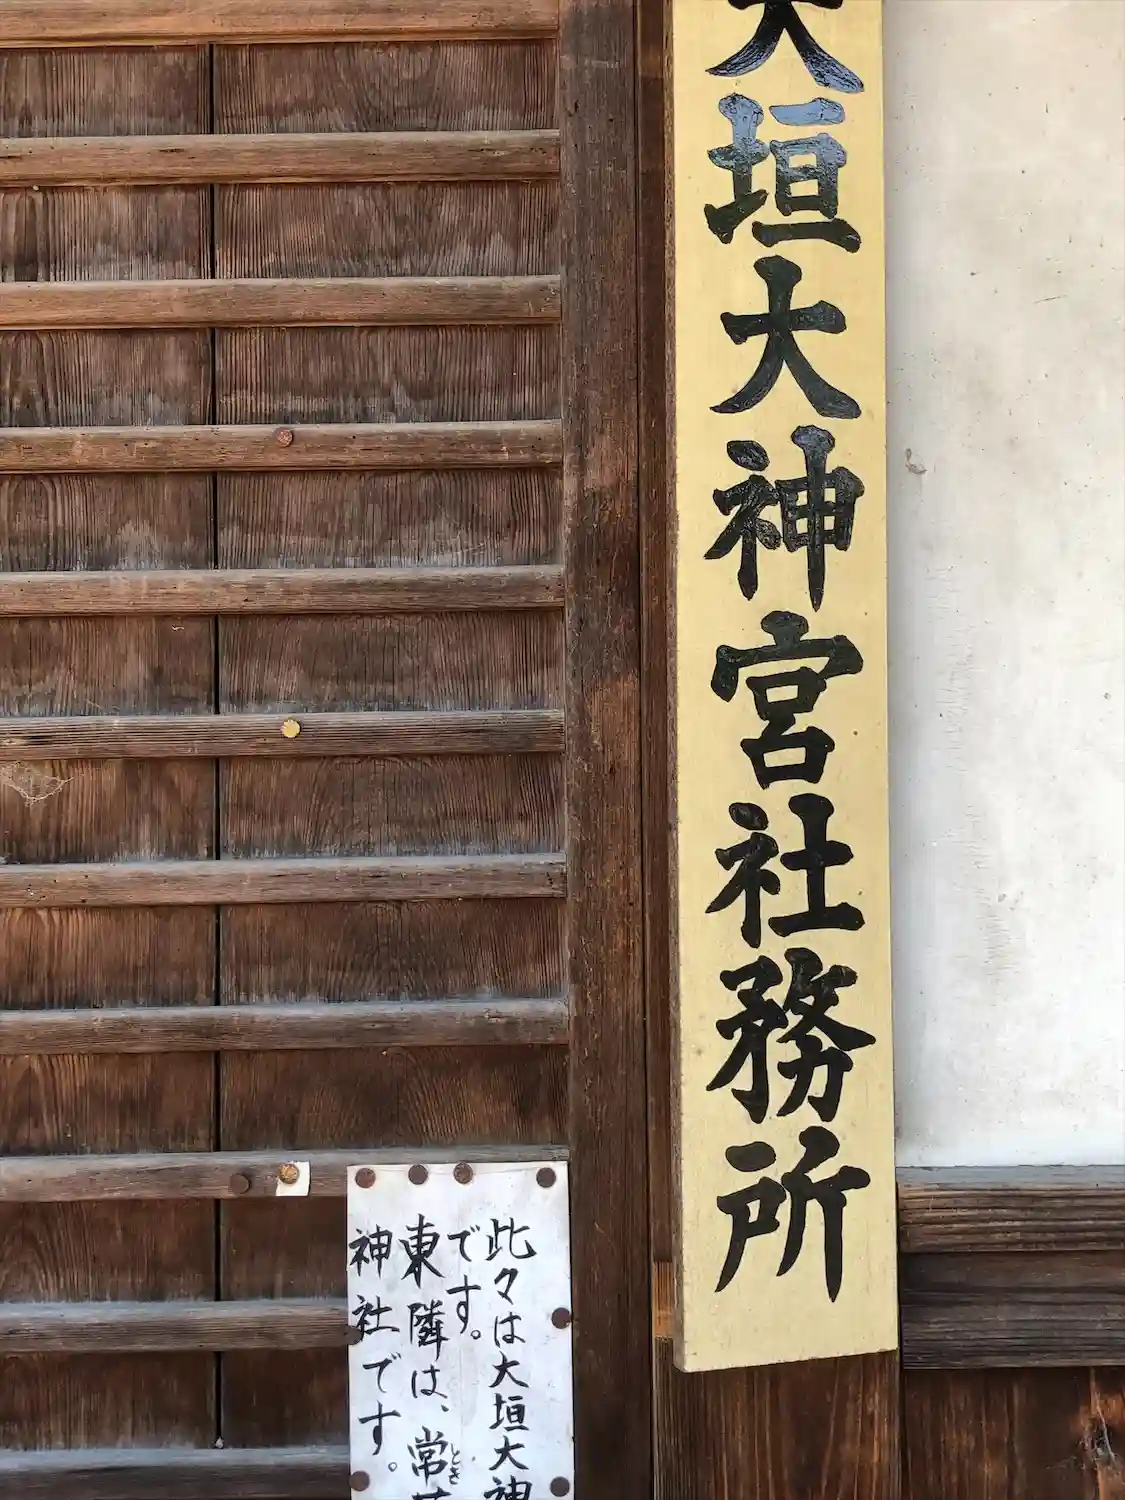 大垣大神宮社務所
此々は大垣大神
です。
東隣は、常
とき
神社です。